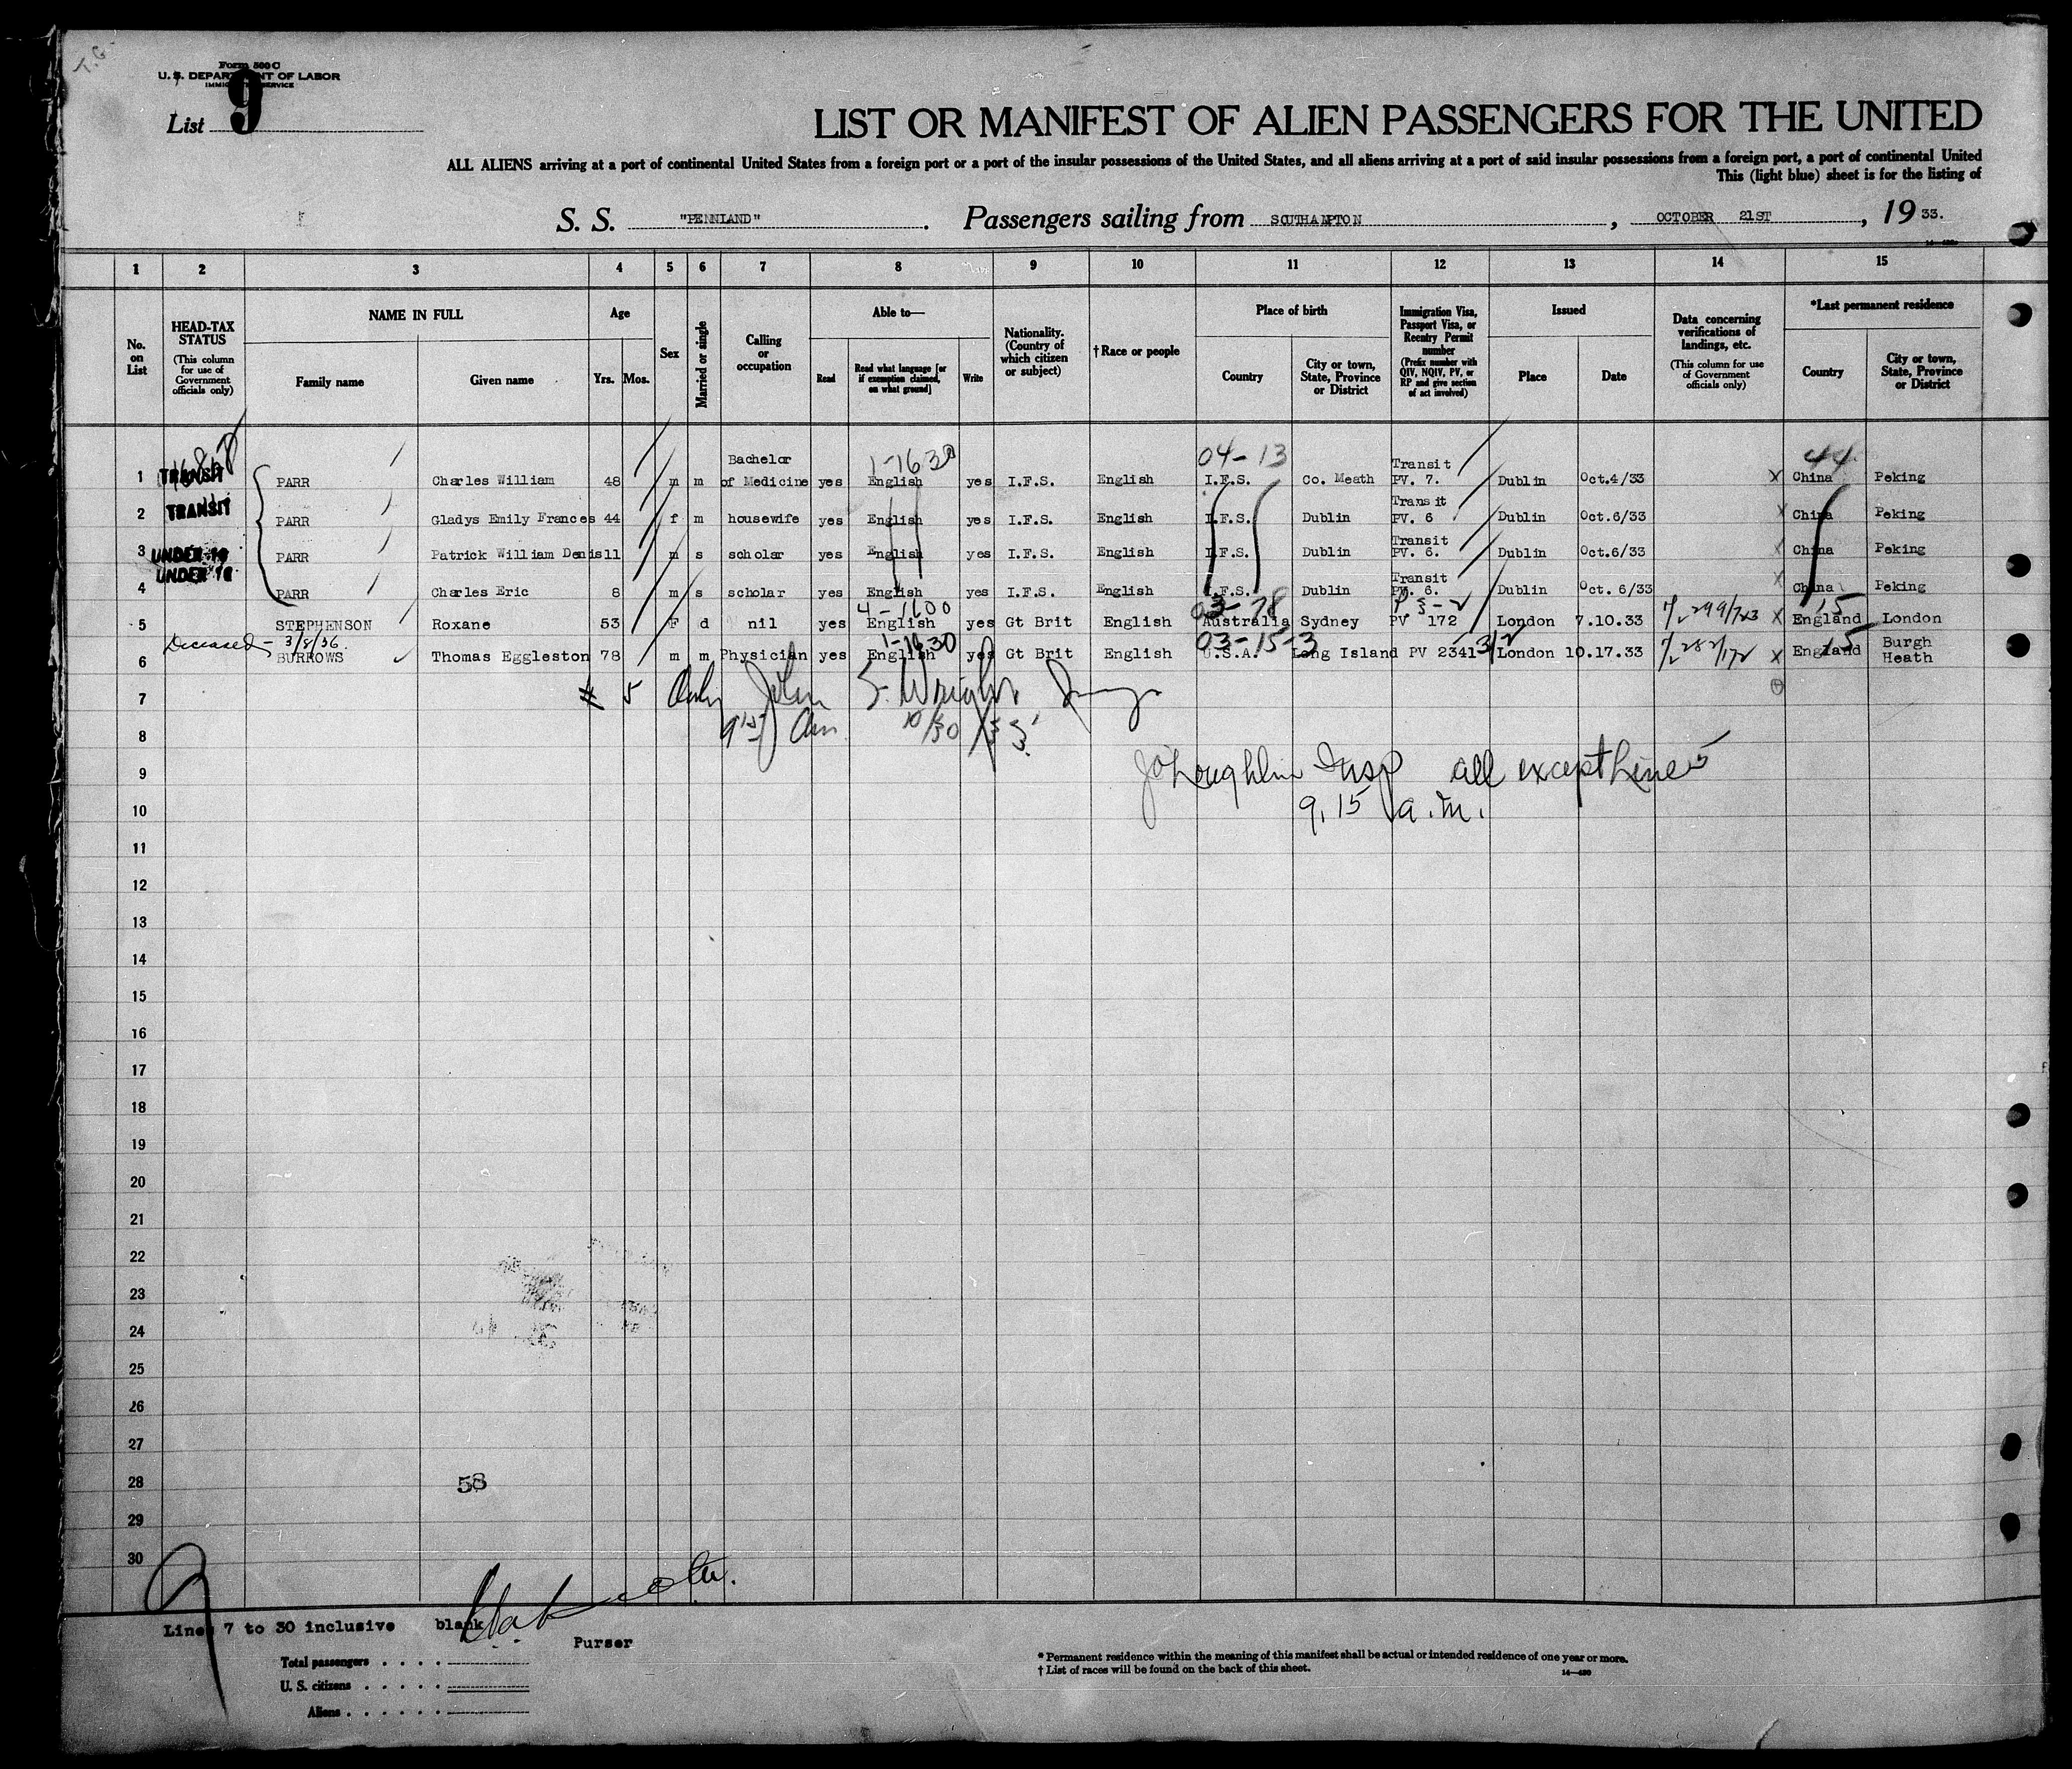 Form 500 C
U. S. DEPARTMENT OF LABOR
IMMIGRATION SERVICE
List 9
LIST OR MANIFEST OF ALIEN PASSENGERS FOR THE UNITED
ALL ALIENS arriving at a port of continental United States from a foreign port or a port of the insular possessions of the United States, and all aliens arriving at a port of said insular possessions from a foreign port, a port of continental United
This (light blue) sheet is for the listing of
S. S. "PENNLAND". Passengers sailing from SOUTHAMPTON, OCTOBER 21ST, 1933.
1 2 3 4 5 6 7 8 9 10 11 12 13 14 15
No. on List
HEAD-TAX STATUS (This column for use of Government officials only)
NAME IN FULL Family name Given name
Age Yrs. Mos.
Sex
Married or single
Calling or occupation
Able to— Read Read what language [or if exemption claimed, on what ground] Write
Nationality. (Country of which citizen or subject)
†Race or people
Place of birth Country City or town, State, Province or District
Immigration Visa, Passport Visa, or Reentry Permit number (Prefix number with QIV, NQIV, PV, or RP and give section of act involved)
Issued Place Date
Data concerning verifications of landings, etc. (This column for use of Government officials only)
*Last permanent residence Country City or town, State, Province or District
1-1630 04-13 44
1 TRANSIT PARR Charles William 48 m m Bachelor of Medicine yes English yes I.F.S. English I.F.S. Co. Meath Transit PV. 7. Dublin Oct.4/33 X China Peking
2 TRANSIT PARR Gladys Emily Frances 44 f m housewife yes English yes I.F.S. English I.F.S. Dublin Transit PV. 6 Dublin Oct.6/33 X China Peking
3 UNDER 16 PARR Patrick William Denis 11 m s scholar yes English yes I.F.S. English I.F.S. Dublin Transit PV. 6. Dublin Oct.6/33 X China Peking
4 UNDER 16 PARR Charles Eric 8 m s scholar yes English yes I.F.S. English I.F.S. Dublin Transit PV. 6. Dublin Oct. 6/33 X China Peking
4-1600 03-78 15
5 STEPHENSON Roxane 53 F d nil yes English yes Gt Brit English Australia Sydney PV 172 London 7.10.33 X England London
Deceased - 3/8/36. 1-1630 03-15-3 3/2 15
6 BURROWS Thomas Eggleston 78 m m Physician yes English yes Gt Brit English U.S.A. Long Island PV 2341 London 10.17.33 X England Burgh Heath
# 5 Only John S. Wright
7
9 15 am 10/30/33
8
9 J O'Loughlin Insp all except Line 5
10 9.15 a.m.
11
12
13
14
15
16
17
18
19
20
21
22
23
24
25
26
27
28 58
29
30
9
Lines 7 to 30 inclusive blank
Purser
Total passengers
U. S. citizens
Aliens
* Permanent residence within the meaning of this manifest shall be actual or intended residence of one year or more.
† List of races will be found on the back of this sheet.
14—430